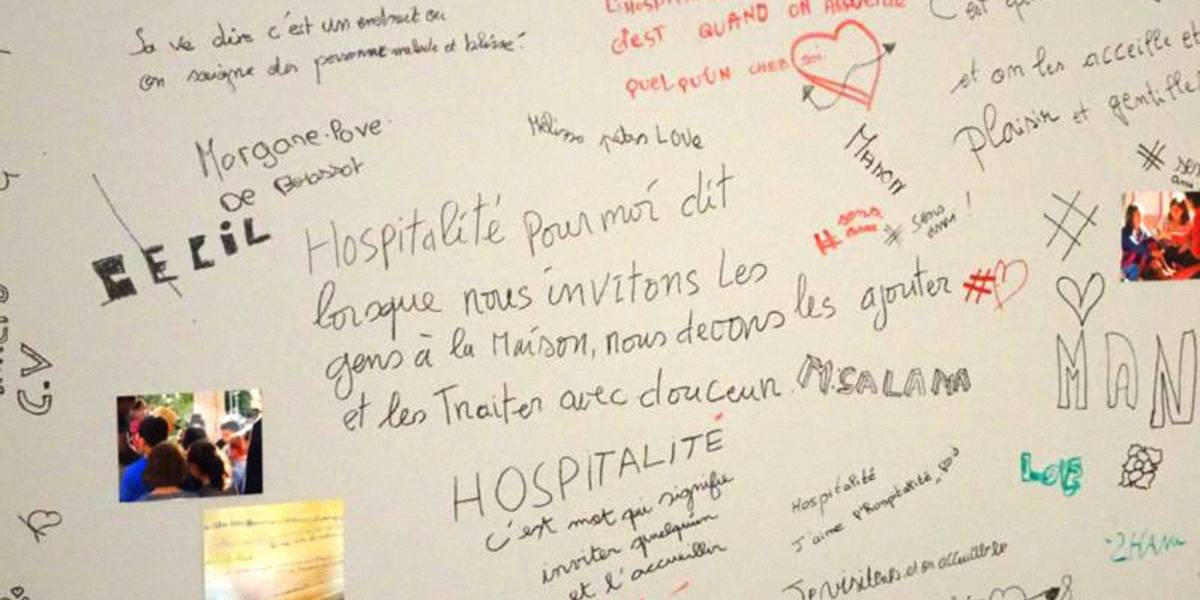 Sa ve dire c'est un endroit ou
on soigne des personne malade et blessé.
L'HOSPI
C'EST QUAND ON ACCUEILLE
QUELQU'UN CHEZ soi.
C'est
et on les acceille et
Plaisir et gentille
Morgane Pove
De
Mélissa LOVE
MANON
CECIL
Hospitalité pour moi dit
lorsque nous invitons les
gens à la Maison, nous devons les ajouter
et les Traiter avec douceur. M.SALAMA
# sens
ami
# sens
ami !
# sens
ami
#
#
MAN
HOSPITALITÉ
c'est mot qui signifie
inviter quelqu'un
et l'accueillir
Hospitalité
J'aime l'hospitalité
LOE
2HAM
Je visite et on accuillere